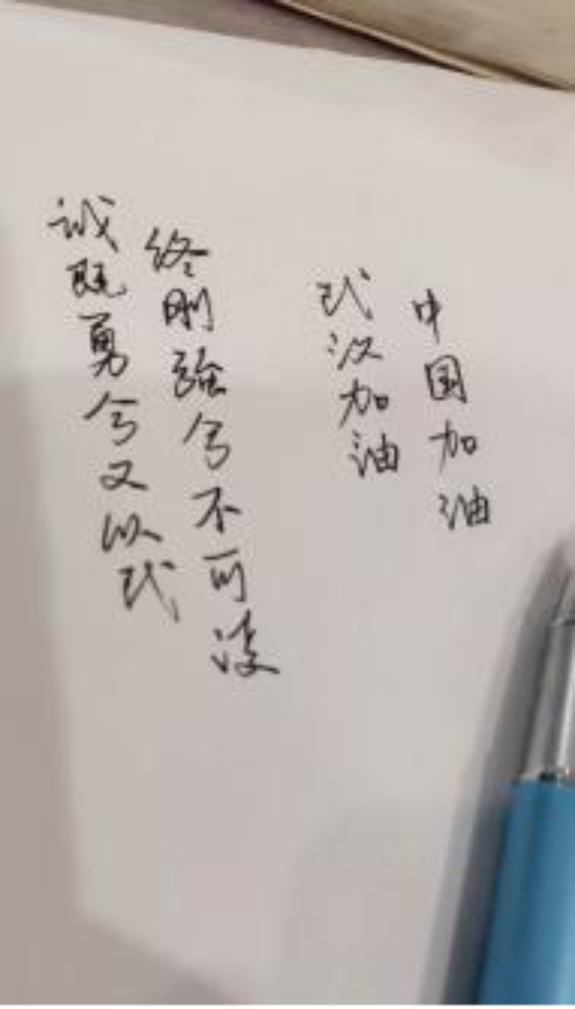 诚既勇兮又以武
终刚强兮不可凌
武汉加油
中国加油